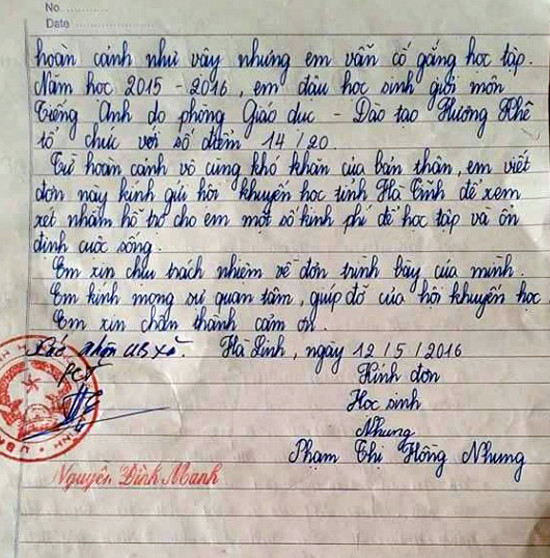 No
Date
hoàn cảnh như vậy nhưng em vẫn cố gắng học tập.
Năm học 2015 - 2016, em đậu học sinh giỏi môn
Tiếng Anh do phòng Giáo dục - Đào tạo Hương Khê
tổ chức với số điểm 14/20.
Từ hoàn cảnh vô cùng khó khăn của bản thân, em viết
đơn này kính gửi hội khuyến học tỉnh Hà Tĩnh để xem
xét nhằm hỗ trợ cho em một số kinh phí để học tập và ổn
định cuộc sống.
Em xin chịu trách nhiệm về đơn trình bày của mình.
Em kính mong sự quan tâm, giúp đỡ của hội khuyến học.
Em xin chân thành cảm ơn.
Xác nhận UB xã. Hà Linh, ngày 12/5/2016
PCT Kính đơn
Học sinh
Nhung
Phạm Thị Hồng Nhung
Nguyễn Đình Mạnh